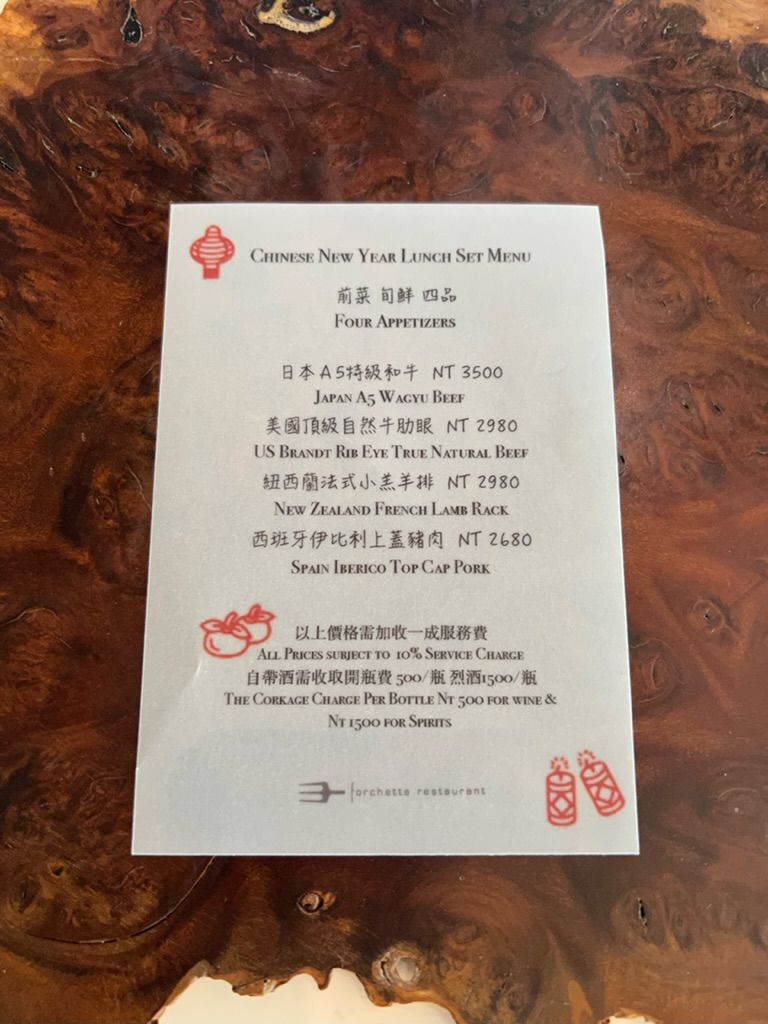 Chinese New Year Lunch Set Menu
前菜 旬鮮 四品
Four Appetizers
日本A5特級和牛 NT 3500
Japan A5 Wagyu Beef
美國頂級自然牛肋眼 NT 2980
US Brandt Rib Eye True Natural Beef
紐西蘭法式小羔羊排 NT 2980
New Zealand French Lamb Rack
西班牙伊比利上蓋豬肉 NT 2680
Spain Iberico Top Cap Pork
以上價格需加收一成服務費
All Prices subject to 10% Service Charge
自帶酒需收取開瓶費 500/瓶 烈酒1500/瓶
The Corkage Charge Per Bottle Nt 500 for wine &
Nt 1500 for Spirits
forchetta restaurant